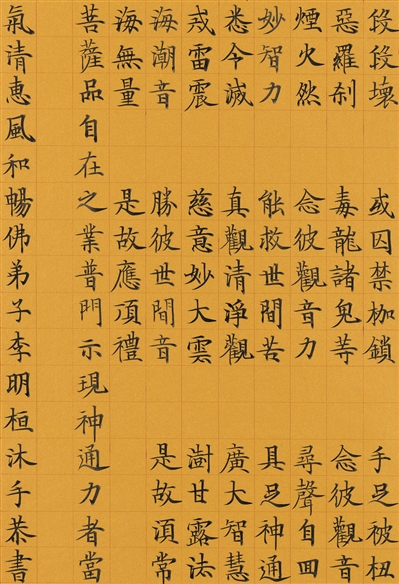 段段壞　或囚禁枷鎖　手足被杻
惡羅剎　毒龍諸鬼等　念彼觀音
煙火然　念彼觀音力　尋聲自回
妙智力　能救世間苦　具足神通
悉令滅　真觀清淨觀　廣大智慧
戒雷震　慈意妙大雲　澍甘露法
海潮音　勝彼世間音　是故須常
海無量　是故應頂禮
菩薩品自在之業普門示現神通力者當
氣清惠風和暢佛弟子李明桓沐手恭書